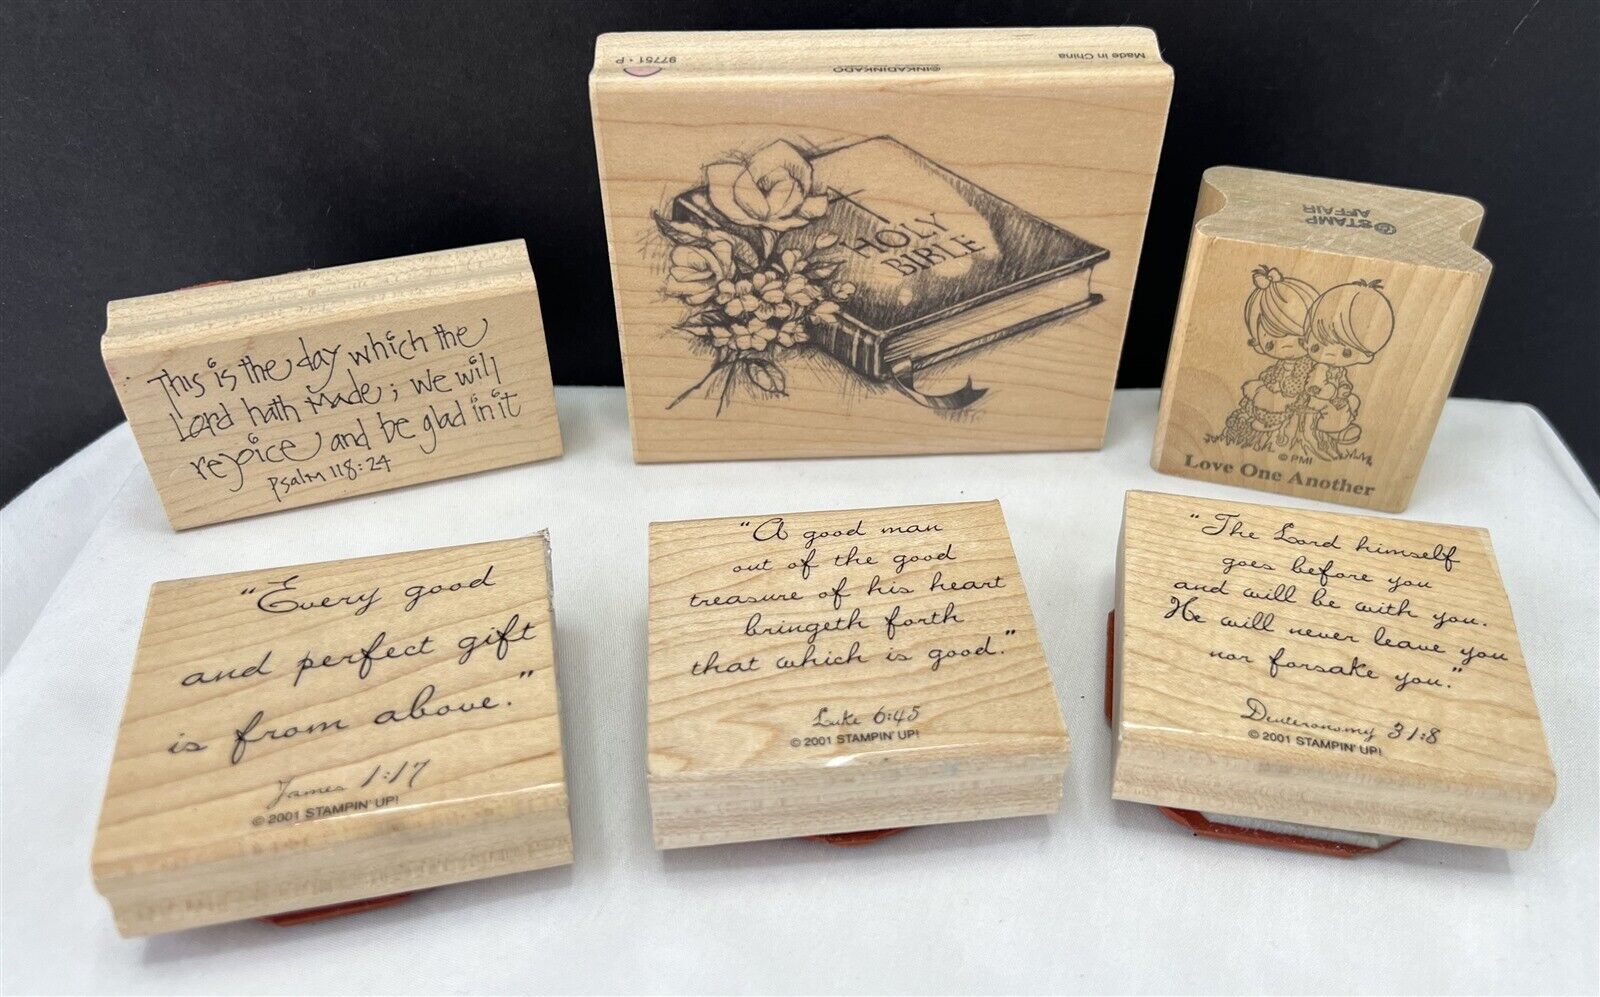 97751 • P
©INKADINKADO
Made in China
HOLY
BIBLE
©STAMP
AFFAIR
© PMI
Love One Another
This is the day which the
Lord hath Made; we will
rejoice and be glad in it
Psalm 118:24
"Every good
and perfect gift
is from above."
James 1:17
© 2001 STAMPIN' UP!
"A good man
out of the good
treasure of his heart
bringeth forth
that which is good."
Luke 6:45
© 2001 STAMPIN' UP!
"The Lord himself
goes before you
and will be with you.
He will never leave you
nor forsake you."
Deuteronomy 31:8
© 2001 STAMPIN' UP!